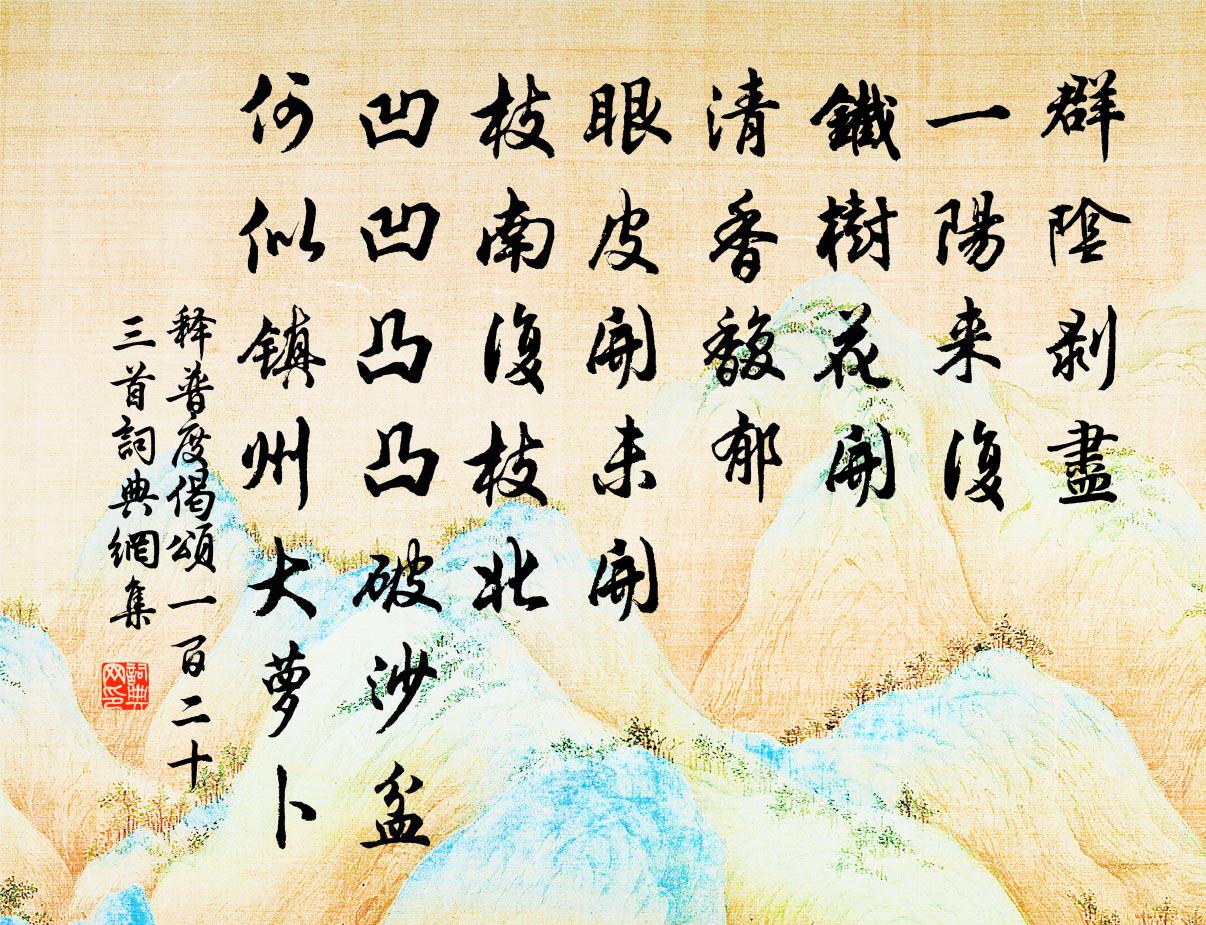 群陰剥盡
一陽来復
鐵樹花開
清香馥郁
眼皮開未開
枝南復枝北
凹凹凸凸破沙盆
何似鎮州大萝卜
释普度偈頌一百二十
三首詞典網集
詞典
网印